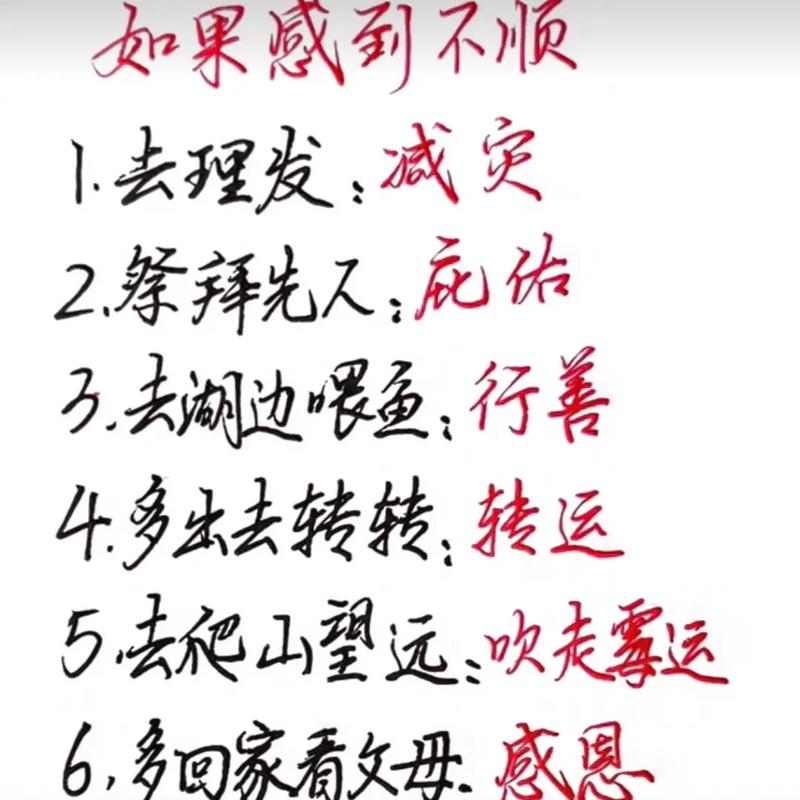 如果感到不顺
1.去理发:减灾
2.祭拜先人:庇佑
3.去湖边喂鱼:行善
4.多出去转转:转运
5.去爬山望远:吹走霉运
6.多回家看父母.感恩